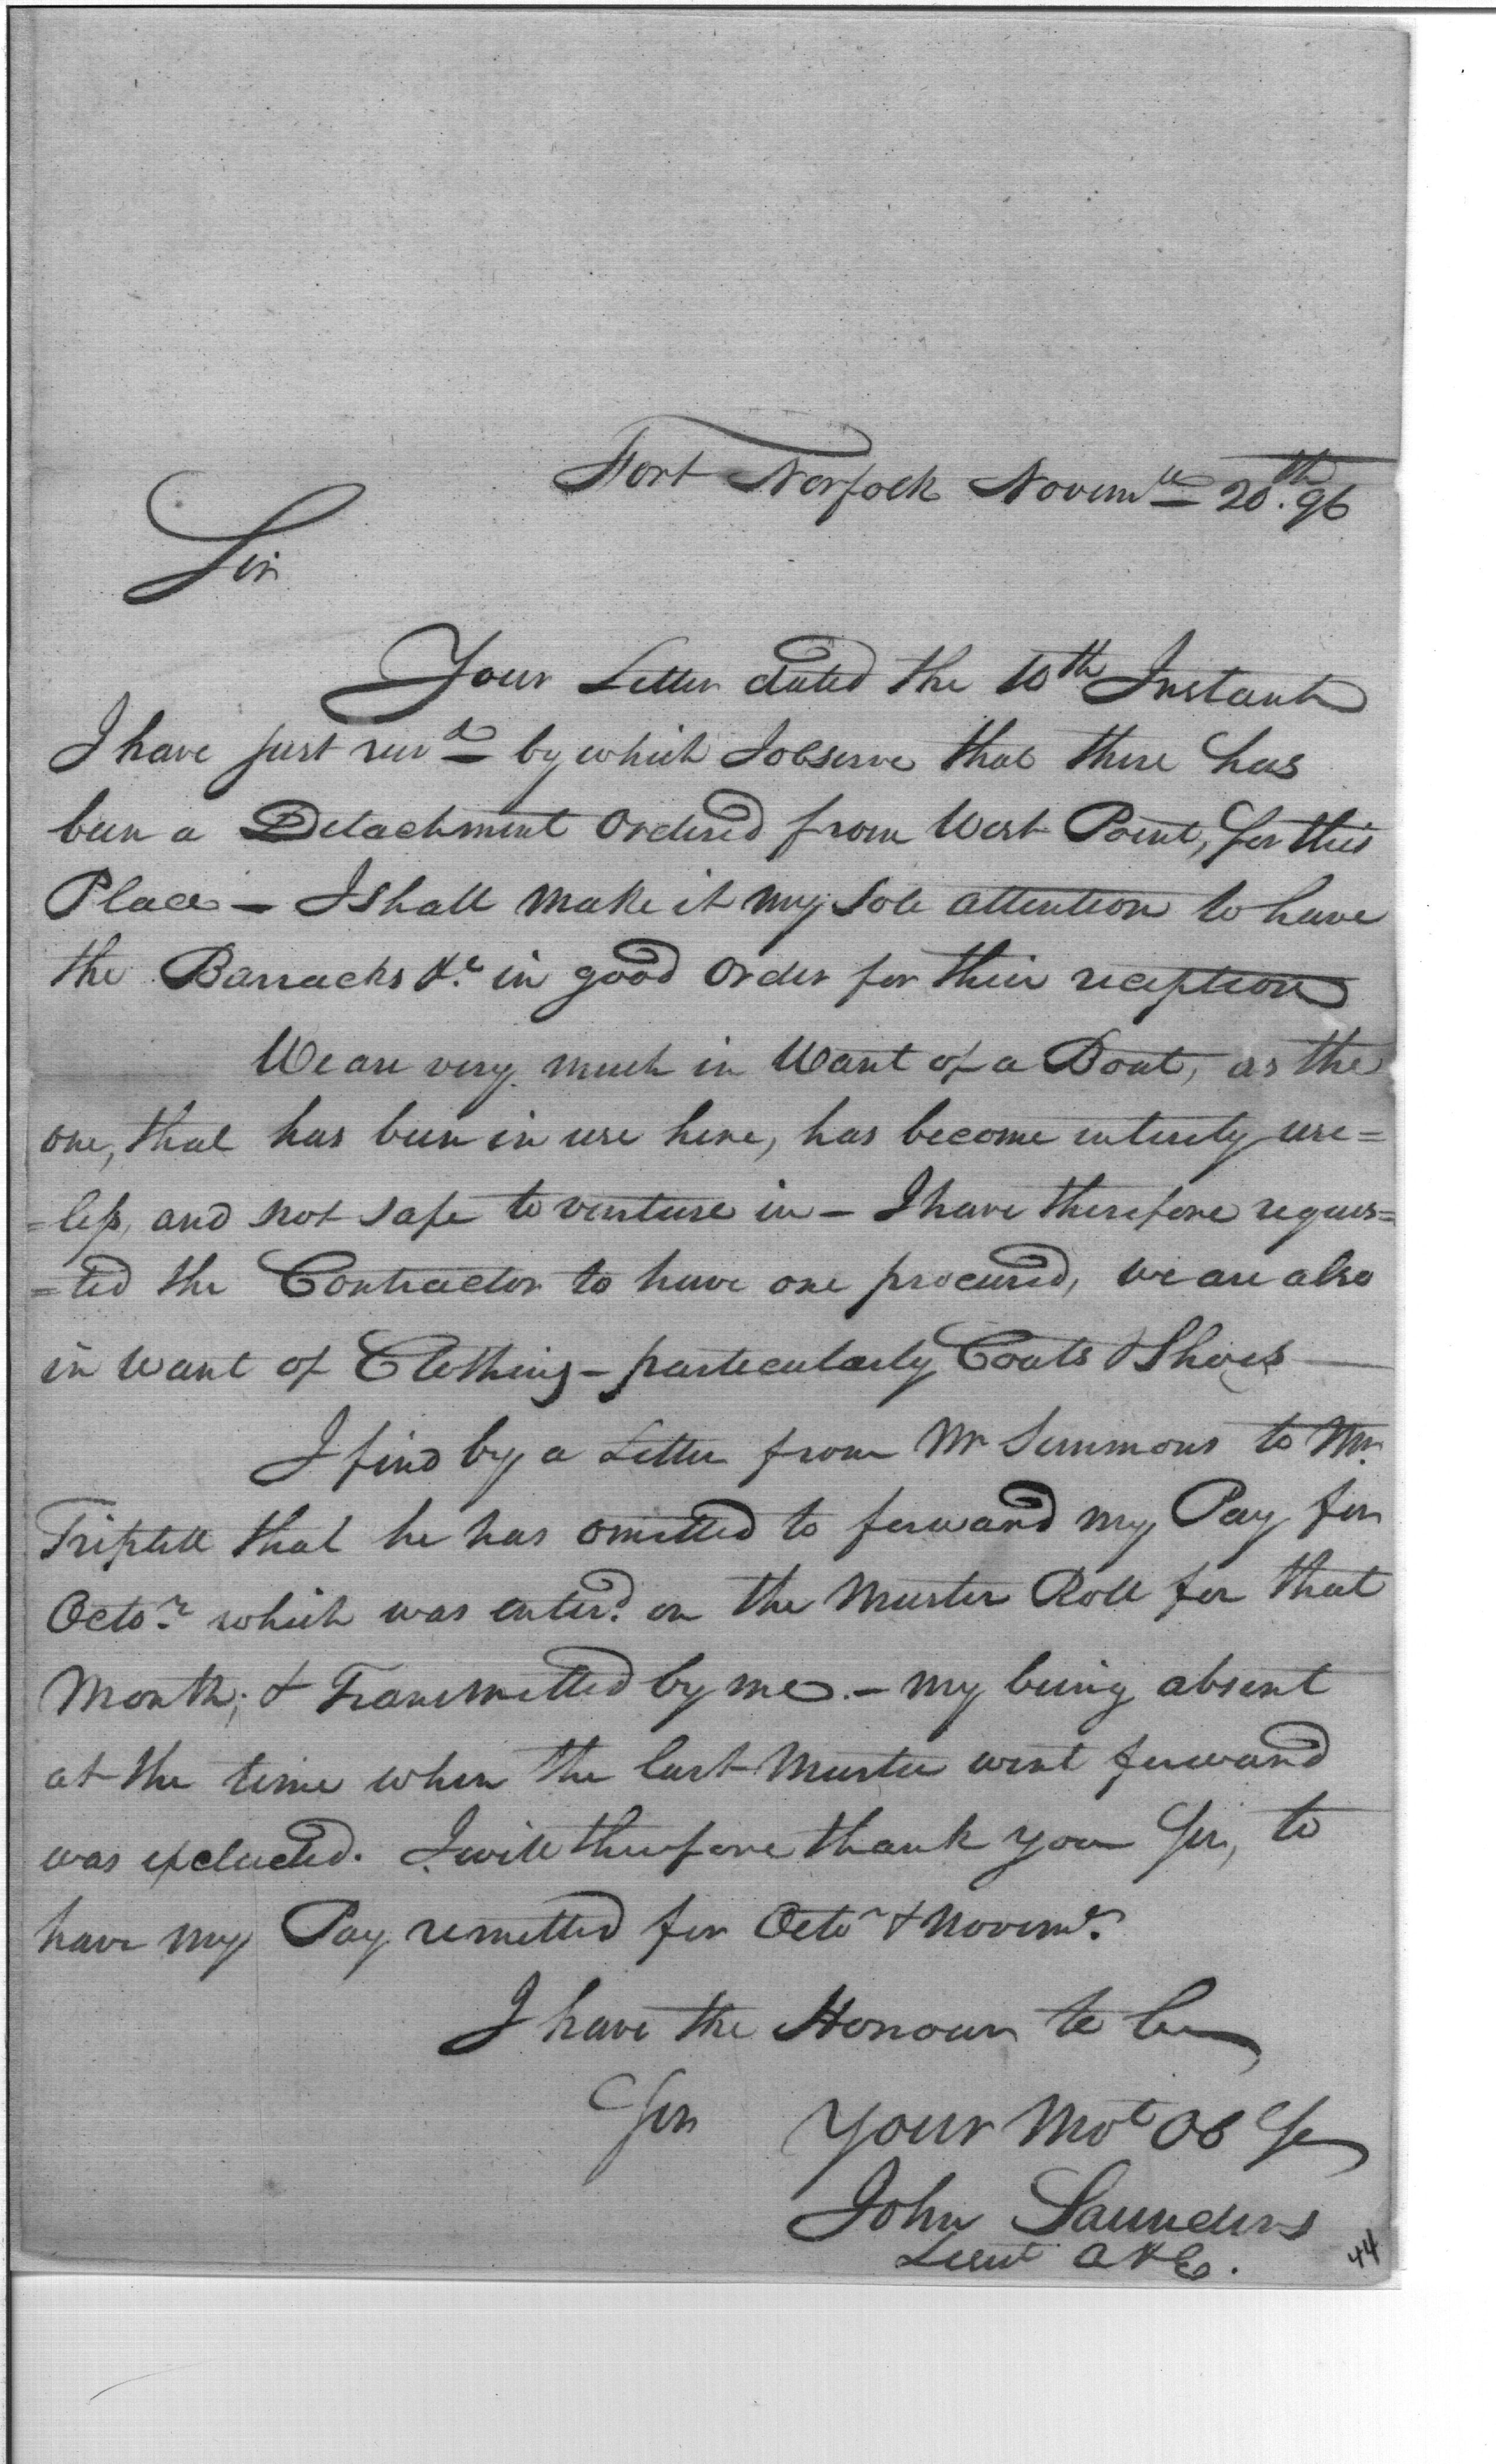 Fort Norfolk Novemr 20th. 96
Sir
Your Letter dated the 10th Instant
I have just recvd by which I observe that there has
been a Detachment Ordered from West Point, for this
Place - I Shall make it my Sole attention to have
the Barracks &c. in good Order for their reception
We are very much in Want of a Boat, as the
one, that has been in use here, has become entirely use=
=less, and not safe to venture in - I have therefore reques=
=ted the Contractor to have one procured, we are also
in want of Clothing - particularly Coats & Shoes —
I find by a Letter from Mr Simmons to Mr.
Triplett that he has omitted to forward my Pay for
Octor. which was enterd. on the Muster Roll for that
Month; & Transmitted by me. - my being absent
at the time when the last Muster went forward
was excluded. I will therefore thank you Sir, to
have my Pay remitted for Octor & Novemr.
I have the Honour to be
Sir Your Mot Ob Se
John Saunders
Lieut A & E.
44